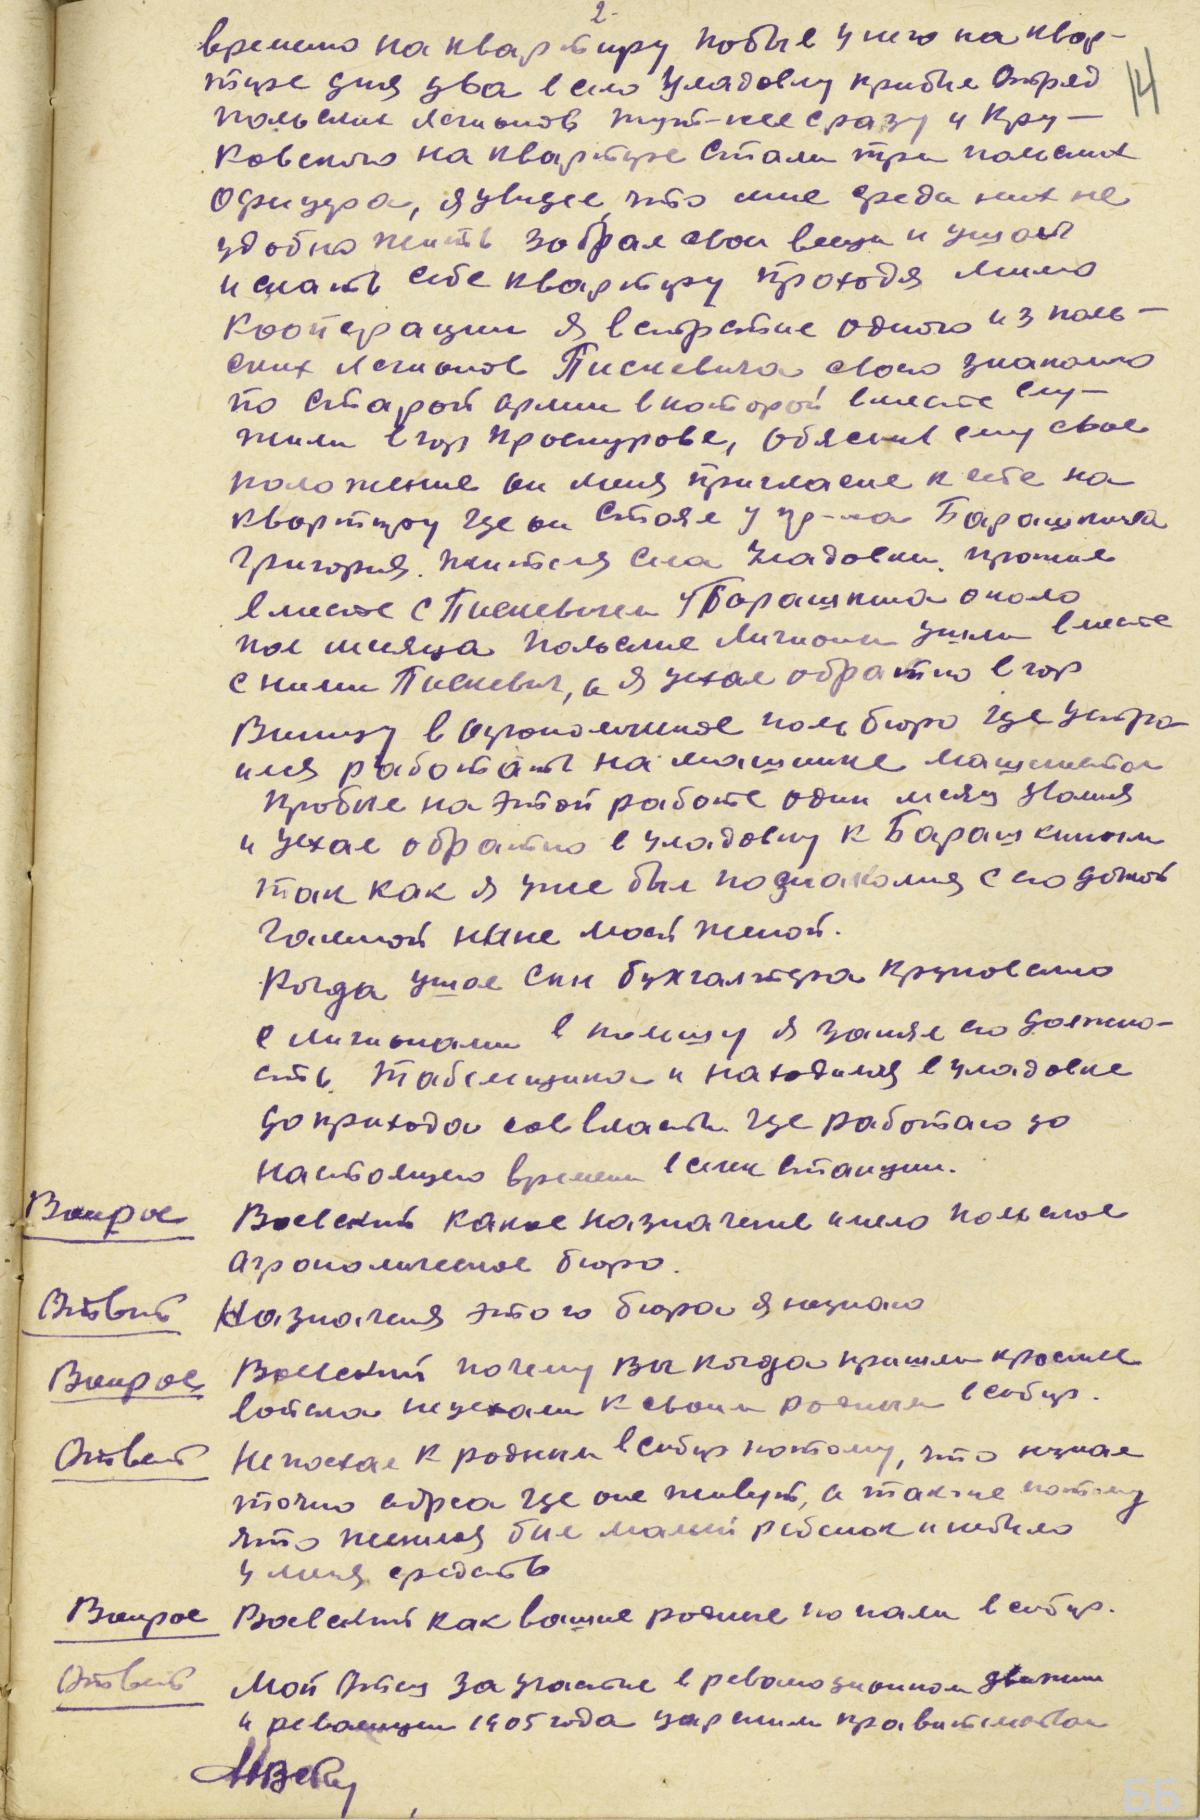 2.
14
временно на квартиру побыл у него на квар-
тире дня два в село Уладовку прибыл Отряд
польских легионов тут-же сразу у Кру-
ковского на квартире стали три польских
офицера, я увидел, что мне среди них не
удобно жить забрал свои вещи и ушол
искать себе квартиру проходя мимо
кооперации я встретил одного из поль-
ских легионов Пискевича своего знакомого
по старой армии в которой вместе слу-
жили в гор Проскурове, обяснив ему свое
положение он меня пригласил к себе на
квартиру где он стоял у гр-на Барашкина
Григория. жителя села Уладовки. прожил
вместе с Пискевичем у Барашкина около
пол месяца польские легионы ушли вместе
с ними Пискевич, а я уехал обратно в гор
Виницу в агрономическое поль бюро где устро
ился работать на машинке машинистом
пробыл на этой работе один месяц уволился
и уехал обратно в Уладовку к Барашкиным
так как я уже был познакомился с его дочкой
Галиной ныне моей женой.
Когда ушол сын бухгалтера Круковского
с легионами в польшу я занял его должно-
сть табельщика и находился в Уладовке
до прихода соввласти где работаю до
настоящего времени в селек станции.
Вопрос Воевский какое назначение имело польское
агрономическое бюро.
Ответ Назначения этого бюра я незнаю
Вопрос Воевский почему Вы когда пришли красные
войска неуехали к своим родным в сибирь.
Ответ Непоехал к родным в сибирь потому, что незнал
точно адреса где оне живут, а также потому
что женился был малый ребенок и небыло
у меня средств
Вопрос Воевский как ваши родные попали в сибирь.
Ответ Мой Отец за участие в революционном движении
и революции 1905 года царским правительством
ББ